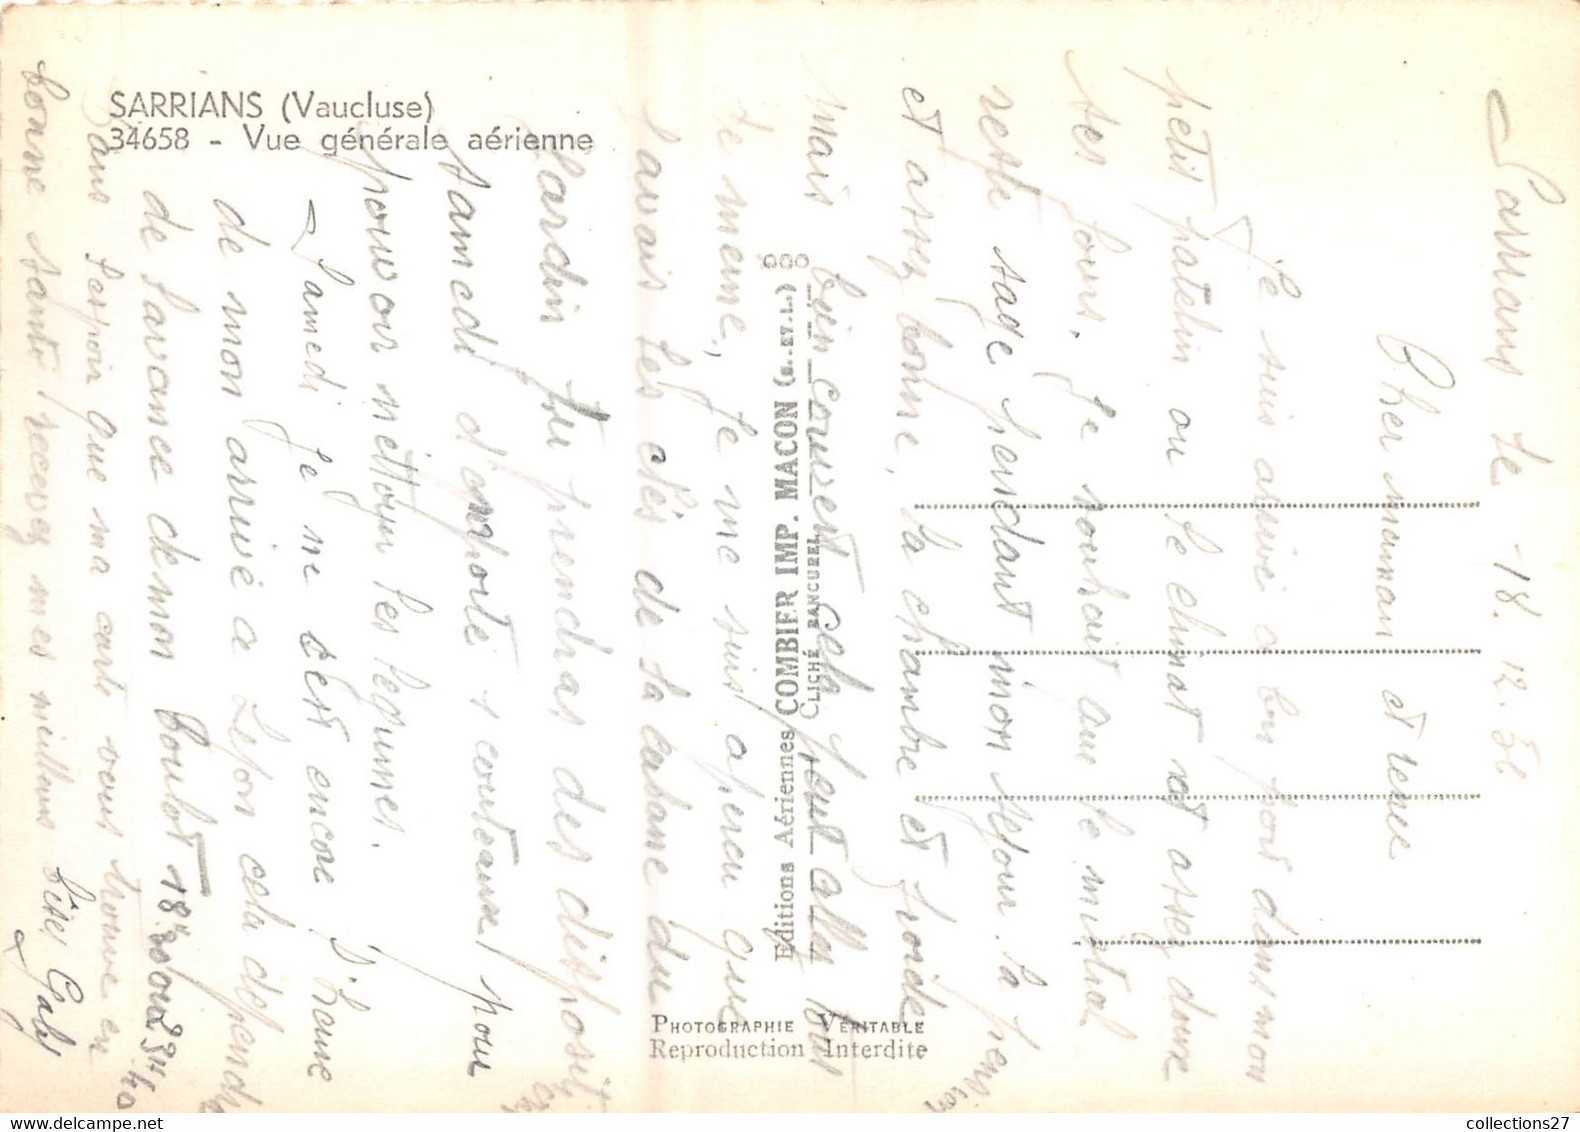 SARRIANS (Vaucluse)
34658 - Vue générale aérienne
Editions Aériennes COMBIER IMP. MACON (S.-ET-L.)
CLICHÉ RANCUREL
PHOTOGRAPHIE VÉRITABLE
Reproduction Interdite
Sarrians le - 18. 12. 56
Cher maman et rene
Je suis arrivé a bon port dans mon
petit patelin ou le climat est assez doux
ces jours. Je souhait que le mistral
reste sage pendant mon séjour. la pension
et assez bonne, la chambre et froide
mais bien couvert cela peut aller tout
de meme, Je me suis aperçu que
j'avais les clés de la cabane du
Jardin tu prendras des dispositions
samedi d'emporté 1 couteaux pour
pouvoir nettoyer les legumes.
Samedi je ne sert encore l'heure
de mon arrivé a Lyon cela depend
de l'avance de mon boulot 18
Dans l'espoir que ma carte vous trouve en
bonne santé recevez mes meilleurs bises Gaby
collections27